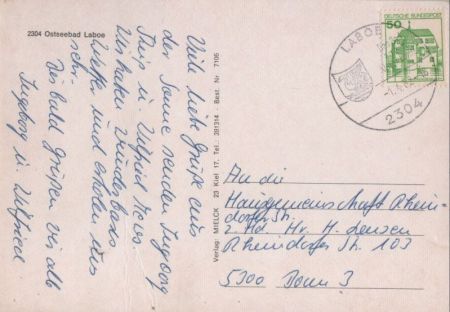 2304 Ostseebad Laboe
Viele liebe Grüße aus
der Sonne senden Ingeborg
Wilfried
Wir haben wunderbares
Wetter und erholen uns
sehr.
Bis bald grüßen Sie alle
Ingeborg u. Wilfried
Verlag: MIELCK 23 Kiel 17. Tel.: 391314 · Best. Nr 7105
DEUTSCHE BUNDESPOST
50
LABOE
2304
An die
Hausgemeinschaft Rhein-
dorfer Str.
z. Hd. Hr. H. Lensen
Rheindorfer Str. 103
5300 Bonn 3